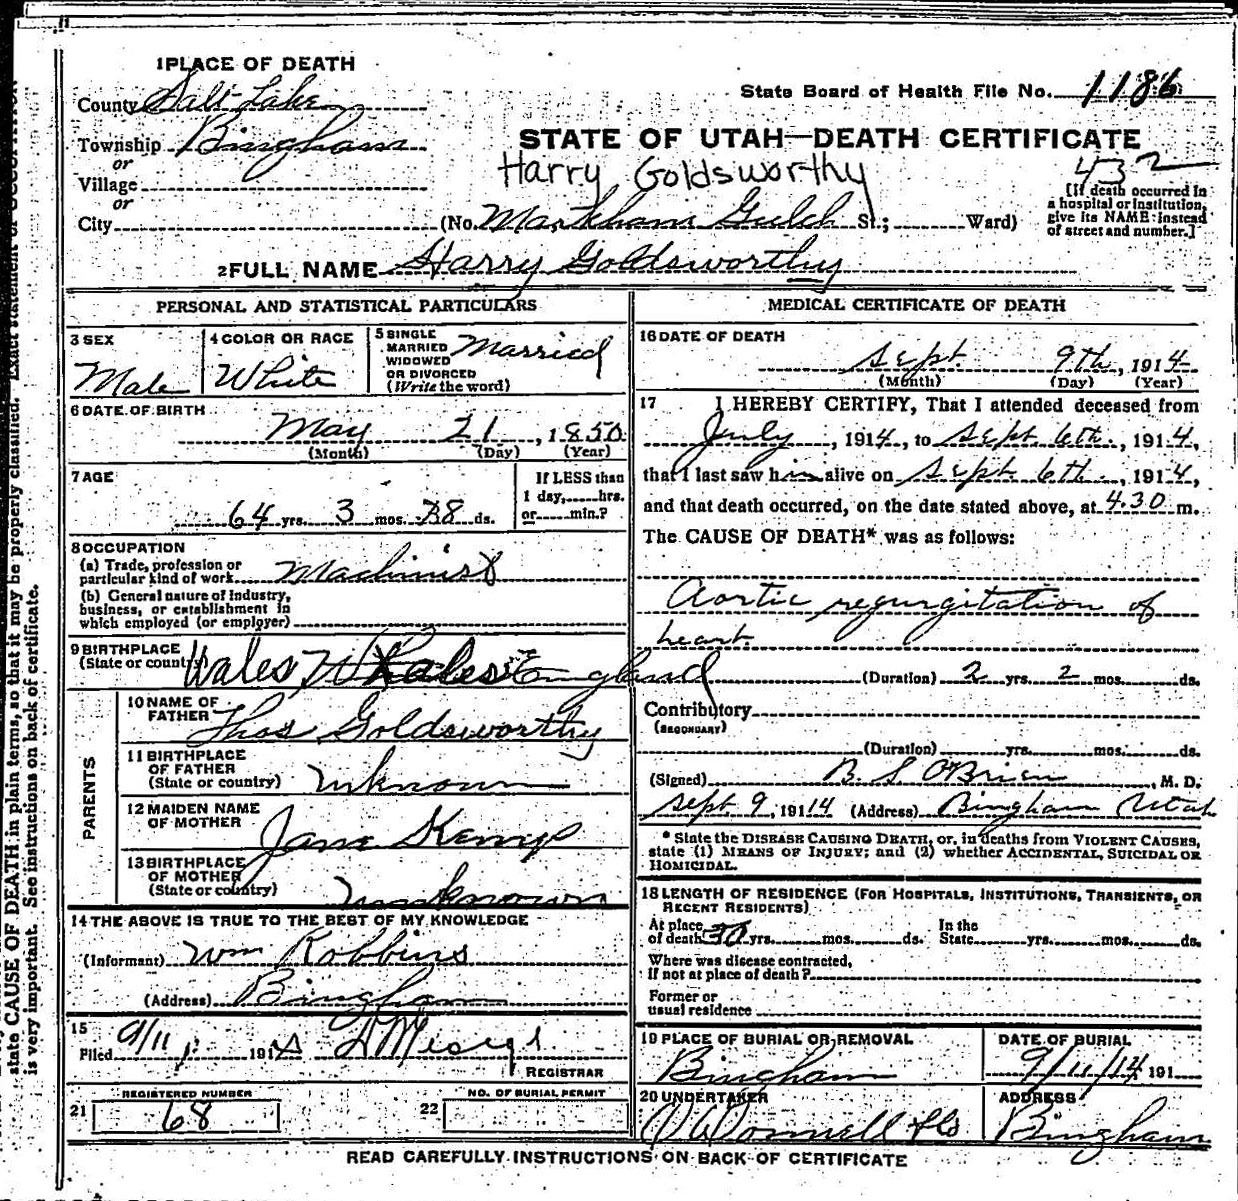 1 PLACE OF DEATH
County Salt Lake
State Board of Health File No. 1186
Township Bingham
STATE OF UTAH—DEATH CERTIFICATE
or
Harry Goldsworthy
432
Village
or
City (No. Markham Gulch St.; Ward)
[If death occurred in
a hospital or institution,
give its NAME instead
of street and number.]
2 FULL NAME Harry Goldsworthy
PERSONAL AND STATISTICAL PARTICULARS
3 SEX
Male
4 COLOR OR RACE
White
5 SINGLE
MARRIED
WIDOWED
OR DIVORCED
(Write the word)
Married
6 DATE OF BIRTH
May 21, 1850
(Month) (Day) (Year)
7 AGE
64 yrs. 3 mos. 18 ds.
If LESS than
1 day, hrs.
or min.?
8 OCCUPATION
(a) Trade, profession or
particular kind of work Machinist
(b) General nature of Industry,
business, or establishment in
which employed (or employer)
9 BIRTHPLACE
(State or country) Wales Whales England
PARENTS
10 NAME OF
FATHER Thos Goldsworthy
11 BIRTHPLACE
OF FATHER
(State or country) unknown
12 MAIDEN NAME
OF MOTHER Jane Kemp
13 BIRTHPLACE
OF MOTHER
(State or country) unknown
14 THE ABOVE IS TRUE TO THE BEST OF MY KNOWLEDGE
(Informant) Wm Robbins
(Address) Bingham
15
Filed 9/11, 1914
REGISTRAR
REGISTERED NUMBER
21 68
NO. OF BURIAL PERMIT
22
MEDICAL CERTIFICATE OF DEATH
16 DATE OF DEATH
Sept. 9th, 1914
(Month) (Day) (Year)
17 I HEREBY CERTIFY, That I attended deceased from
July, 1914, to Sept 6th, 1914,
that I last saw him alive on Sept. 6th, 1914,
and that death occurred, on the date stated above, at 4.30 m.
The CAUSE OF DEATH* was as follows:
Aortic regurgitation of
heart.
(Duration) 2 yrs. 2 mos. ds.
Contributory
(SECONDARY)
(Duration) yrs. mos. ds.
(Signed) B. S. O'Brien, M. D.
Sept. 9, 19114 (Address) Bingham Utah
* State the DISEASE CAUSING DEATH, or, in deaths from VIOLENT CAUSES,
state (1) MEANS OF INJURY; and (2) whether ACCIDENTAL, SUICIDAL OR
HOMICIDAL.
18 LENGTH OF RESIDENCE (FOR HOSPITALS, INSTITUTIONS, TRANSIENTS, OR
RECENT RESIDENTS)
At place
of death 30 yrs. mos. ds.
In the
State yrs. mos. ds.
Where was disease contracted,
if not at place of death?
Former or
usual residence
19 PLACE OF BURIAL OR REMOVAL
Bingham
DATE OF BURIAL
9/11/14 191
20 UNDERTAKER
O'Donnell
ADDRESS
Bingham
READ CAREFULLY INSTRUCTIONS ON BACK OF CERTIFICATE
state CAUSE OF DEATH in plain terms, so that it may be properly classified. Exact statement of OCCUPATION
is very important. See instructions on back of certificate.